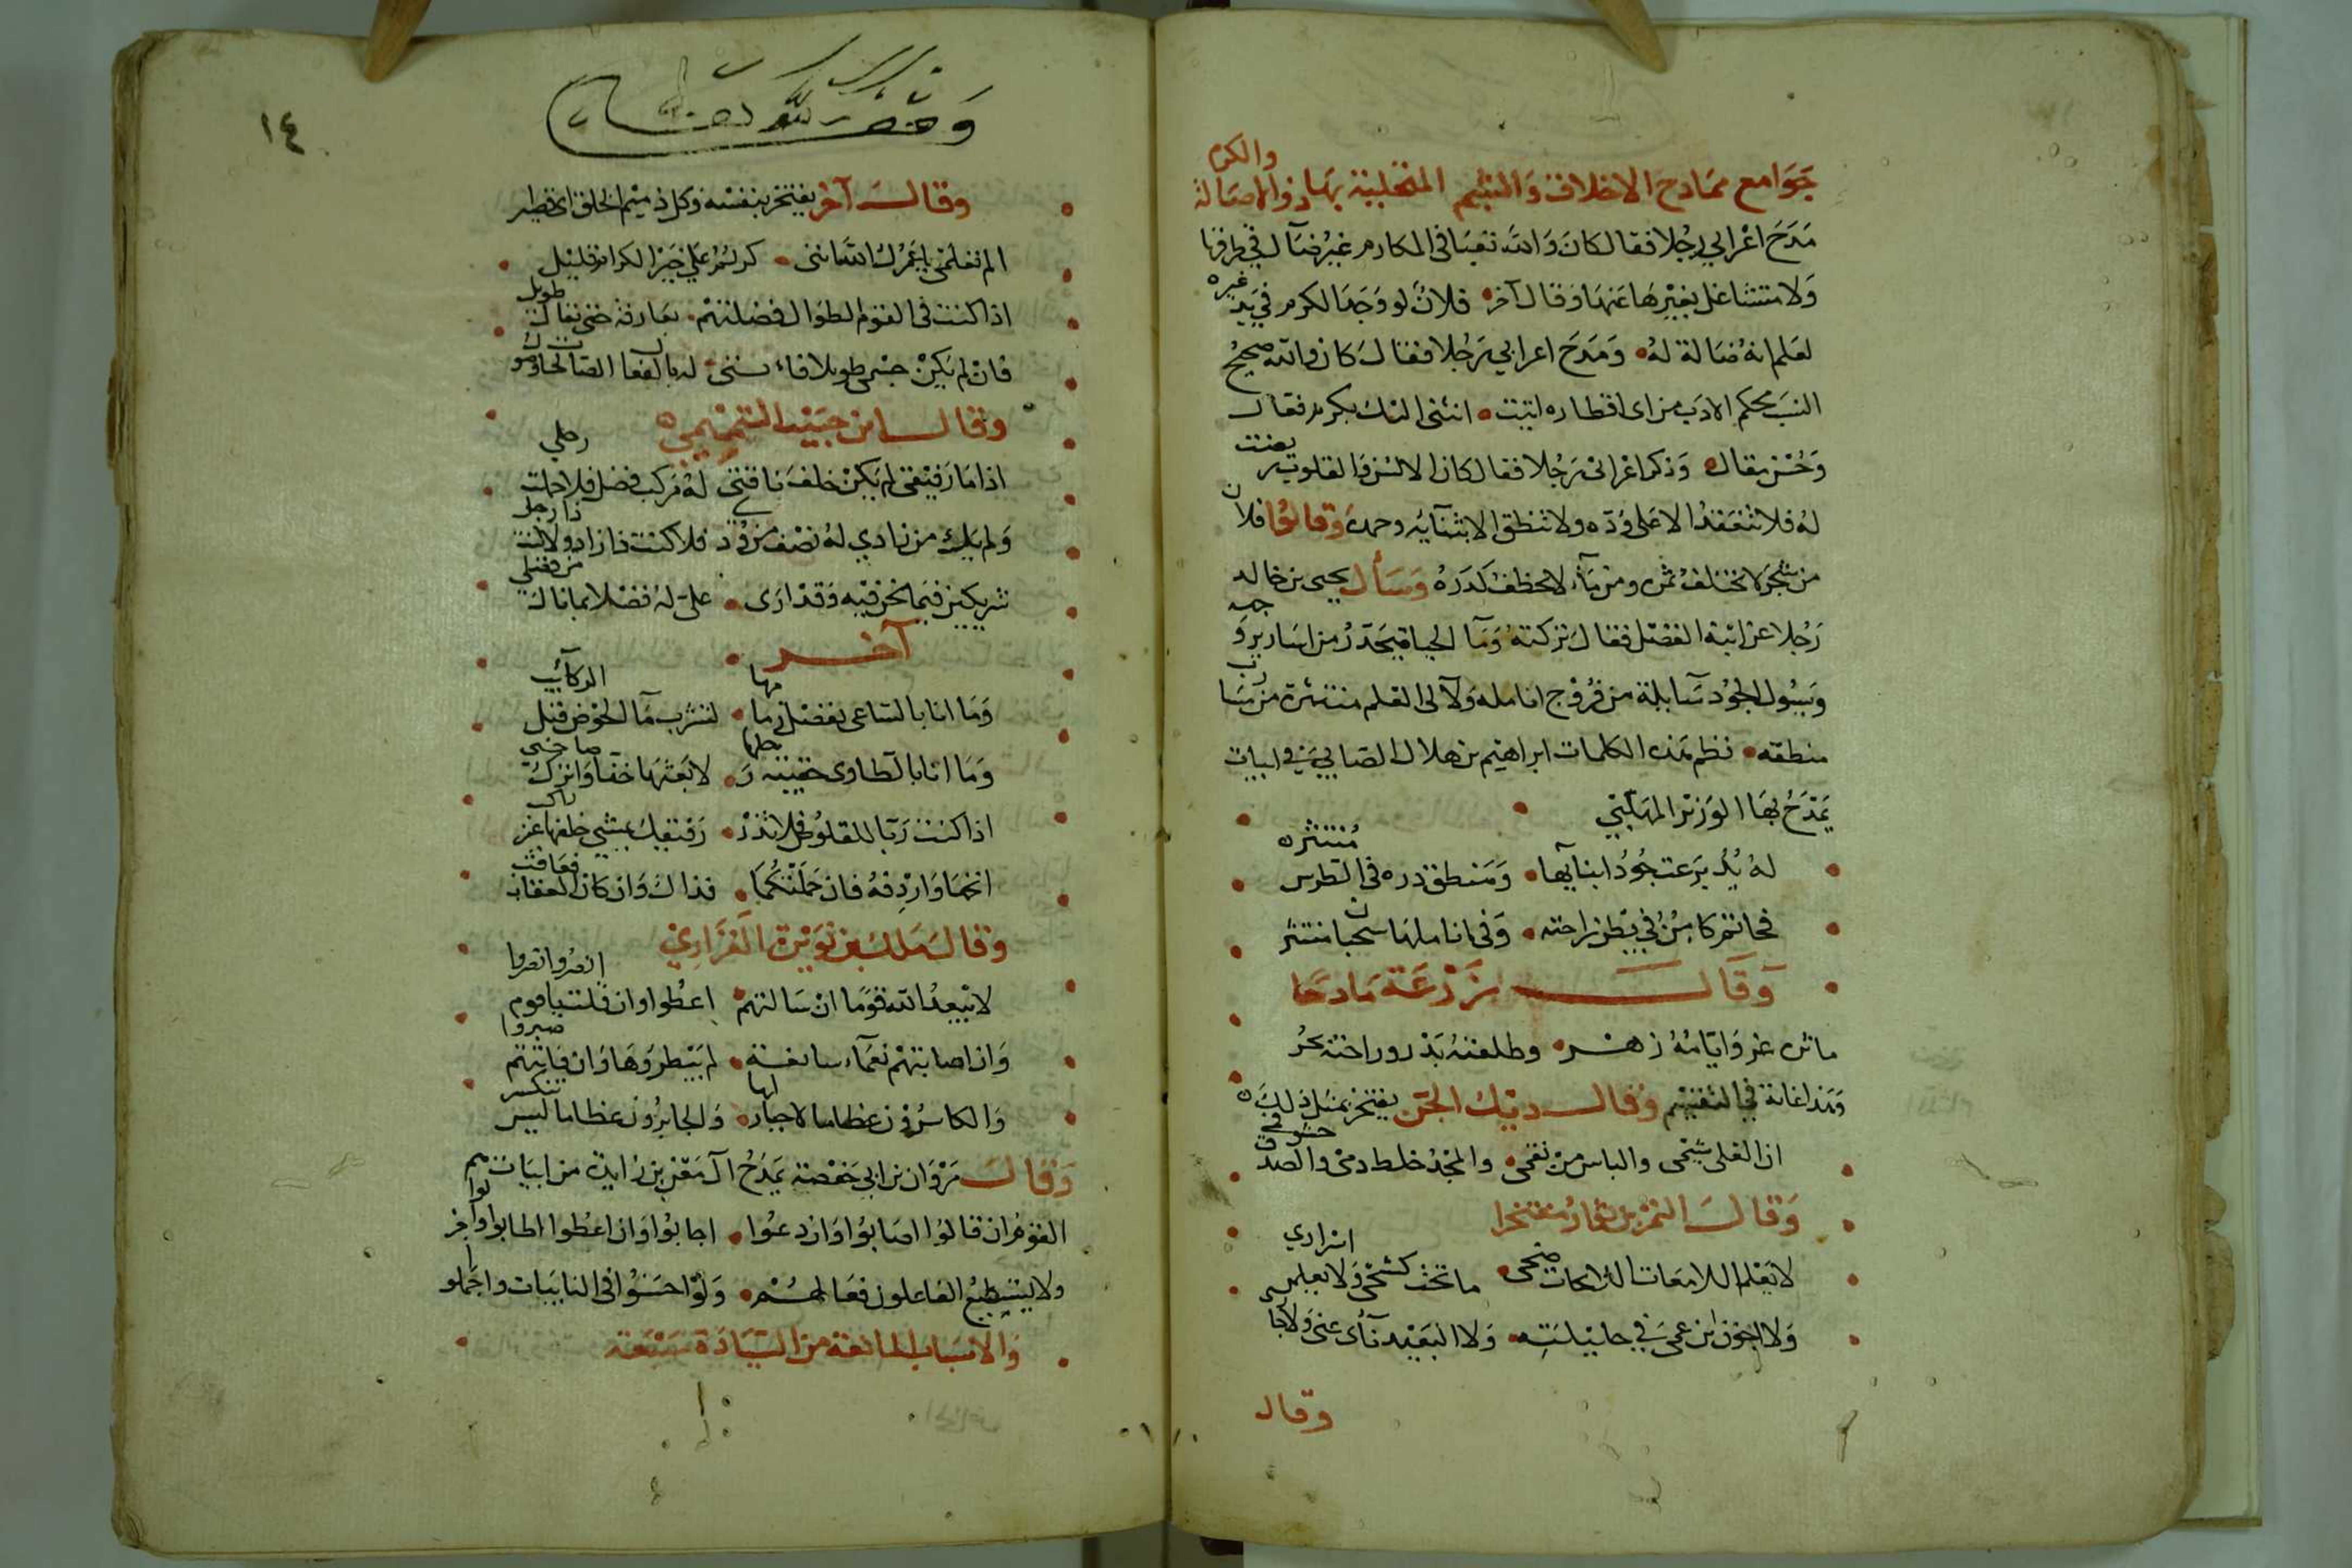 جوامع ممادح الاخلاق والشيم المتحلية بها ذوو الاصالة والكرم
مدح اعرابي رجلا فقال كان والله تعبا في المكارم غير ضال في طرقها
ولا متشاغل بغيرها عنها وقال آخر فلان لو وجد الكرم في يد غيره
لعلم انه ضالة له ومدح اعرابي رجلا فقال كان والله صحيح
النسب محكم الادب من اي اقطاره اتيته انثنى اليك بكرم فقال
وحسن مقال وذكر اعرابي رجلا فقال كان الالسن والقلوب ريضت
له فلا تنعقد الا على وده ولا تنطق الا بثنايه وحمده وقالوا فلان
من شجر لا تختلف ثمره ومن ماء لا كدره وسأل يحيى بن خالد
رجلا عن ابنه الفضل فقال تركته وماء الحياء يتحدر من اسارير وجهه
وسيول الجود سابلة من فروج انامله ولآلى العلم منتثرة من
منطقه نظم هذه الكلمات ابراهيم بن هلال الصابي في ابيات
يمدح بها الوزير المهلبي
له يد برعت جودا بنايها ومنطق دره في الطرس منتثره
فحاتم كامن في بطن راحته وفي اناملها سحبان منتثر
وقال زرعة مادحا
مآثره غر وايامه زهر وطلعته بدر وراحته بحر
وهذا غاية في التقسيم وقال ديك الجن يفتخر بمثل ذلك
ان العلى شيمي والباس من نقمي والمجد خلط دمي والصدق حشو فمي
وقال النمر مفتخرا
لا يعلم اللامعات اللائحات ضحى ما تحت كشحي ولا يعلمن اسراري
ولا اخون ابن عمي في حليلته ولا البعيد نأى عني ولا جاري
وقال
وقف لله تعالى
١٤
وقال آخر يفتخر بنفسه وكل ذميم الخلق اي قصير
الم تعلمي يا عمرك الله انني كريم على حين الكرام قليل
اذا كنت في القوم الطوال فضلتهم بعارفة حتى يقال طويل
فان لم يكن جسمي طويلا فاءنني له بالفعال الصالحات وصول
وقال ابن حبيب التميمي
اذا ما رفيقي لم يكن خلف ناقتي له مركب فضل فلا حملت رحلي
ولم يك من زادي له نصف مزودي فلا كنت ذا زاد ولا كنت ذا رحل
شريكين فيما نحن فيه وقد ارى علي له فضلا بما نال من فضلي
آخر
وما انا بالساعي بفضل زمامها لتشرب ماء الحوض قبل الركائب
وما انا بالطاوي حقيبة رحلها لابعثها خفا واترك صاحبي
اذا كنت ربا للقلوص فلا تذر رفيقك يمشي خلفها غير راكب
انخها واردفه فان حملتكما فذاك وان كان العقاب فعاقب
وقال ملك بن نويرة الفزاري
لا يبعد الله قوما ان سالتهم اعطوا وان قلت يا قوم انصروا نصروا
وان اصابتهم نعماء سابغة لم يبطروها وان فاتتهم صبروا
والكاسرون عظاما لا جبار لها والجابرون عظاما ليس تنكسر
وقال مروان بن ابي حفصة يمدح آل معن بن زايدة من ابيات
هم القوم ان قالوا اصابوا وان دعوا اجابوا وان اعطوا اطابوا واجزلوا
ولا يستطيع الفاعلون فعالهم ولو احسنوا في النايبات واجملوا
والاسباب المانعة من السيادة سبعة